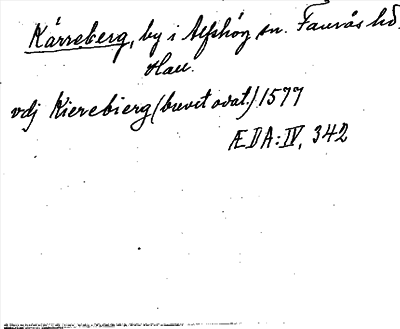 Kärreberg, by i Alfshög sn. Faurås hd.
Hall.
vdj Kierebierg (brevet odat.) 1577
ÆDA: IV, 342